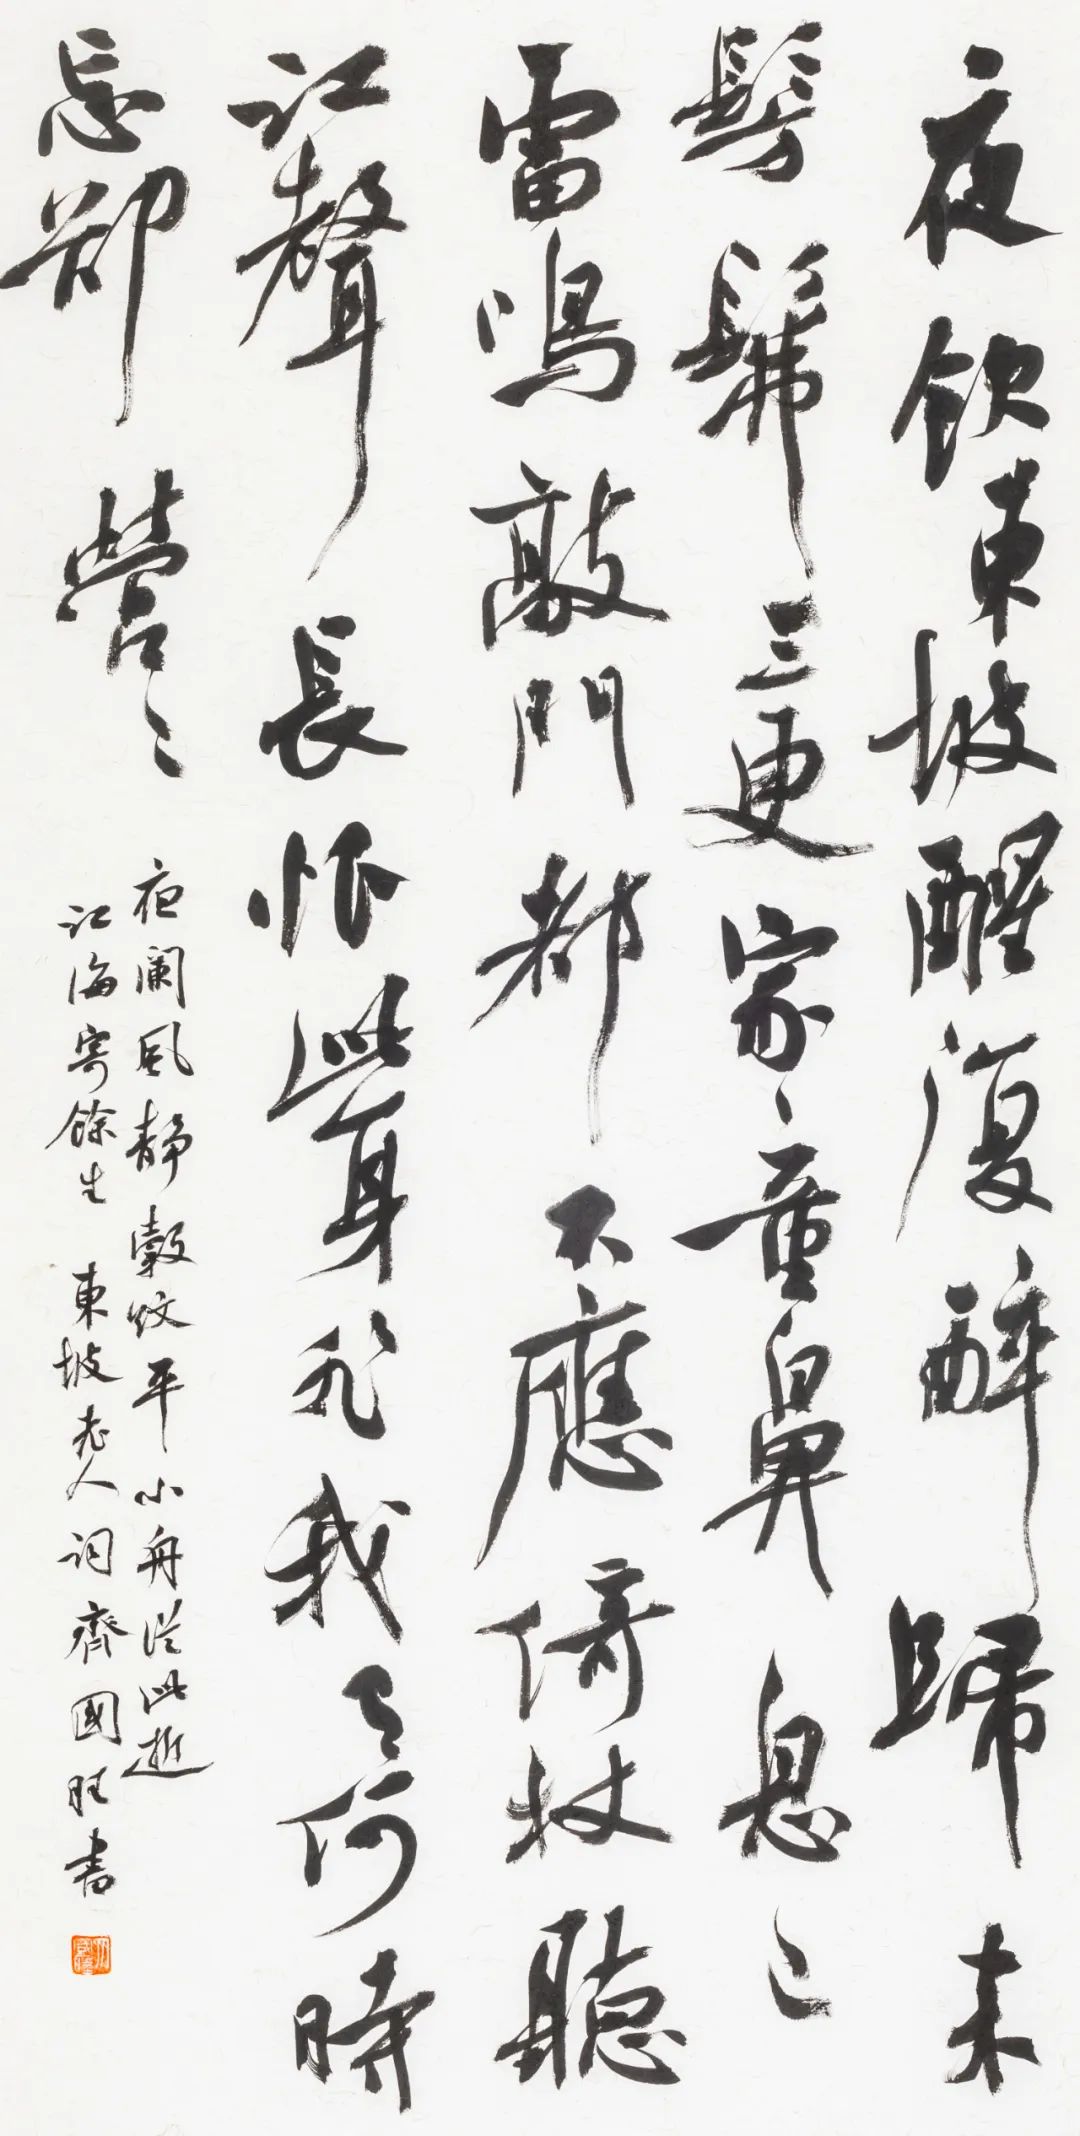 夜飲東坡醒復醉歸来
髣髴三更家童鼻息已
雷鳴敲門都不應倚杖聽
江聲長恨此身非我有何時
忘卻營々
夜闌風静縠紋平小舟從此逝
江海寄餘生 東坡老人詞齊國旺書